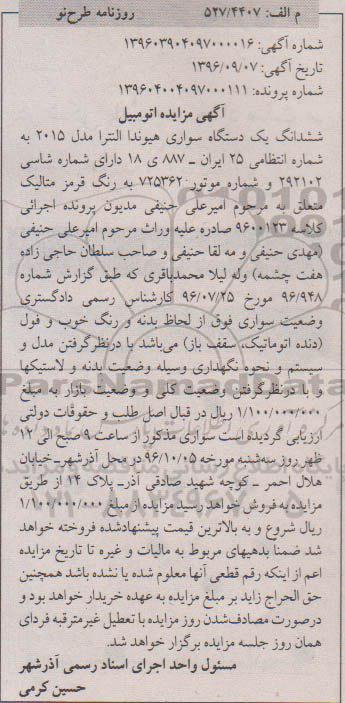 م الف: ۵۲۷/۴۴۰۷ روزنامه طرح‌نو
شماره آگهی: ۱۳۹۶۰۳۹۰۴۰۹۷۰۰۰۰۱۶
تاریخ آگهی: ۱۳۹۶/۰۹/۰۷
شماره پرونده: ۱۳۹۶۰۴۰۰۴۰۹۷۰۰۰۱۱۱
آگهی مزایده اتومبیل
ششدانگ یک دستگاه سواری هیوندا النترا مدل ۲۰۱۵ به
شماره انتظامی ۲۵ ایران ــ ۸۸۷ ی ۱۸ دارای شماره شاسی
۲۹۲۱۰۲ و شماره موتور ۷۲۵۳۶۲ به رنگ قرمز متالیک
متعلق به مرحوم امیرعلی حنیفی مدیون پرونده اجرائی
کلاسه ۹۶۰۰۱۲۳ صادره علیه وراث مرحوم امیرعلی حنیفی
(مهدی حنیفی و مه لقا حنیفی و صاحب سلطان حاجی زاده
هفت چشمه) وله لیلا محمدباقری که طبق گزارش شماره
۹۶/۹۴۸ مورخ ۹۶/۰۷/۲۵ کارشناس رسمی دادگستری
وضعیت سواری فوق از لحاظ بدنه و رنگ خوب و فول
(دنده اتوماتیک، سقف باز) می‌باشد با درنظرگرفتن مدل و
سیستم و نحوه نگهداری وسیله وضعیت بدنه و لاستیکها
و با درنظرگرفتن وضعیت کلی و وضعیت بازار به مبلغ
۱/۱۰۰/۰۰۰/۰۰۰ ریال در قبال اصل طلب و حقوقات دولتی
ارزیابی گردیده است سواری مذکور از ساعت ۹ صبح الی ۱۲
ظهر روز سه‌شنبه مورخه ۹۶/۱۰/۰۵ در محل آذرشهر ــ خیابان
هلال احمر ــ کوچه شهید صادقی آذر ــ پلاک ۱۴ از طریق
مزایده به فروش خواهد رسید مزایده از مبلغ ۱/۱۰۰/۰۰۰/۰۰۰
ریال شروع و به بالاترین قیمت پیشنهادشده فروخته خواهد
شد ضمنا بدهیهای مربوط به مالیات و غیره تا تاریخ مزایده
اعم از اینکه رقم قطعی آنها معلوم شده یا نشده باشد همچنین
حق الحراج زاید بر مبلغ مزایده به عهده خریدار خواهد بود و
درصورت مصادف‌شدن روز مزایده با تعطیل غیرمترقبه فردای
همان روز جلسه مزایده برگزار خواهد شد.
مسئول واحد اجرای اسناد رسمی آذرشهر
حسین کرمی